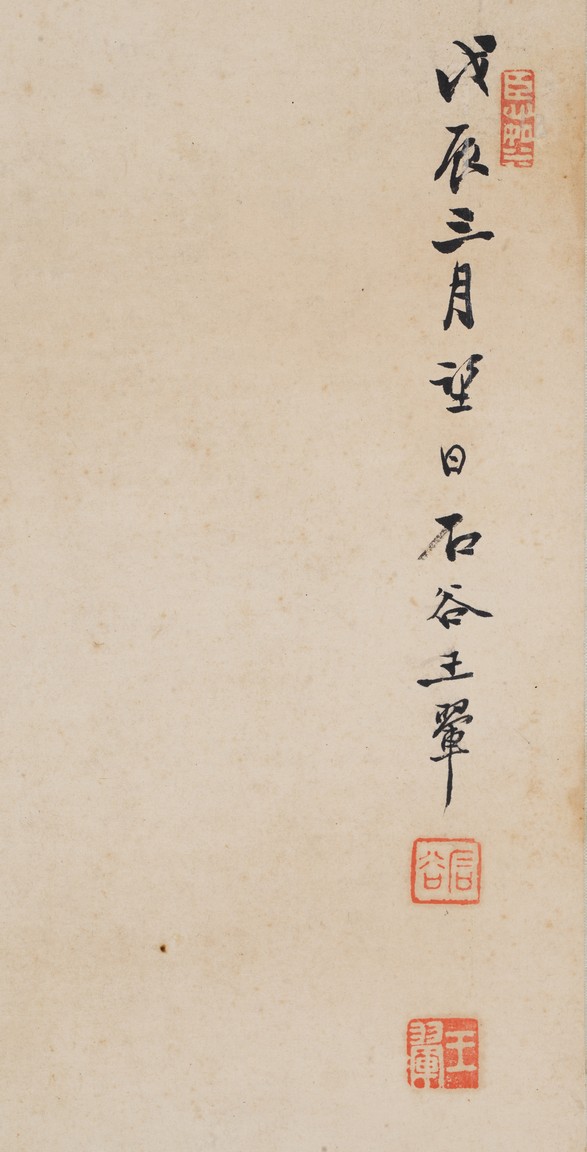 戊辰三月望日石谷王翬
石谷
王翬